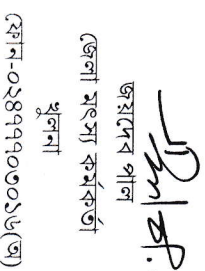 জয়দেব পাল
জেলা মৎস্য কর্মকর্তা
খুলনা
ফোন-০২৪৭৭৭০০৩১৬(অ)